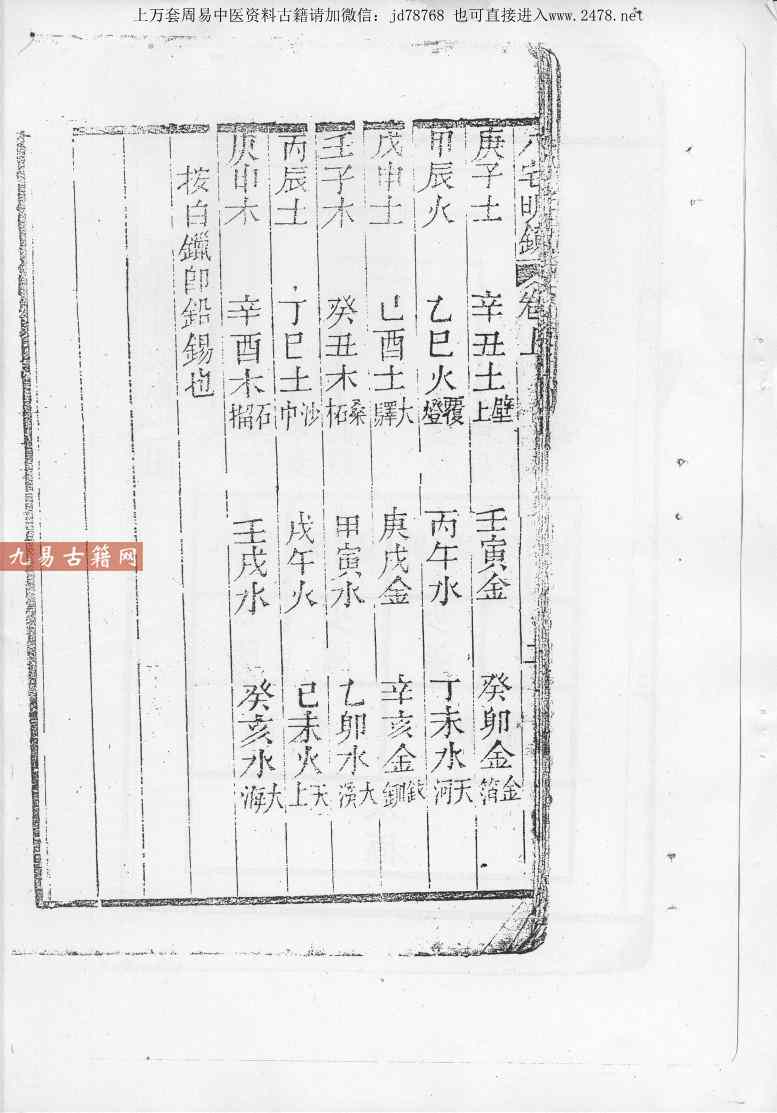 上万套周易中医资料古籍请加微信：jd78768 也可直接进入www.2478.net
八宅明鏡 卷上
庚子土 辛丑土 壁上 壬寅金 癸卯金 金箔
甲辰火 乙巳火 覆燈 丙午水 丁未水 天河
戊申土 己酉土 大驛 庚戌金 辛亥金 釵釧
壬子木 癸丑木 桑柘 甲寅水 乙卯水 大溪
丙辰土 丁巳土 沙中 戊午火 己未火 天上
庚申木 辛酉木 石榴 壬戌水 癸亥水 大海
按白鑞即鉛錫也
九易古籍网